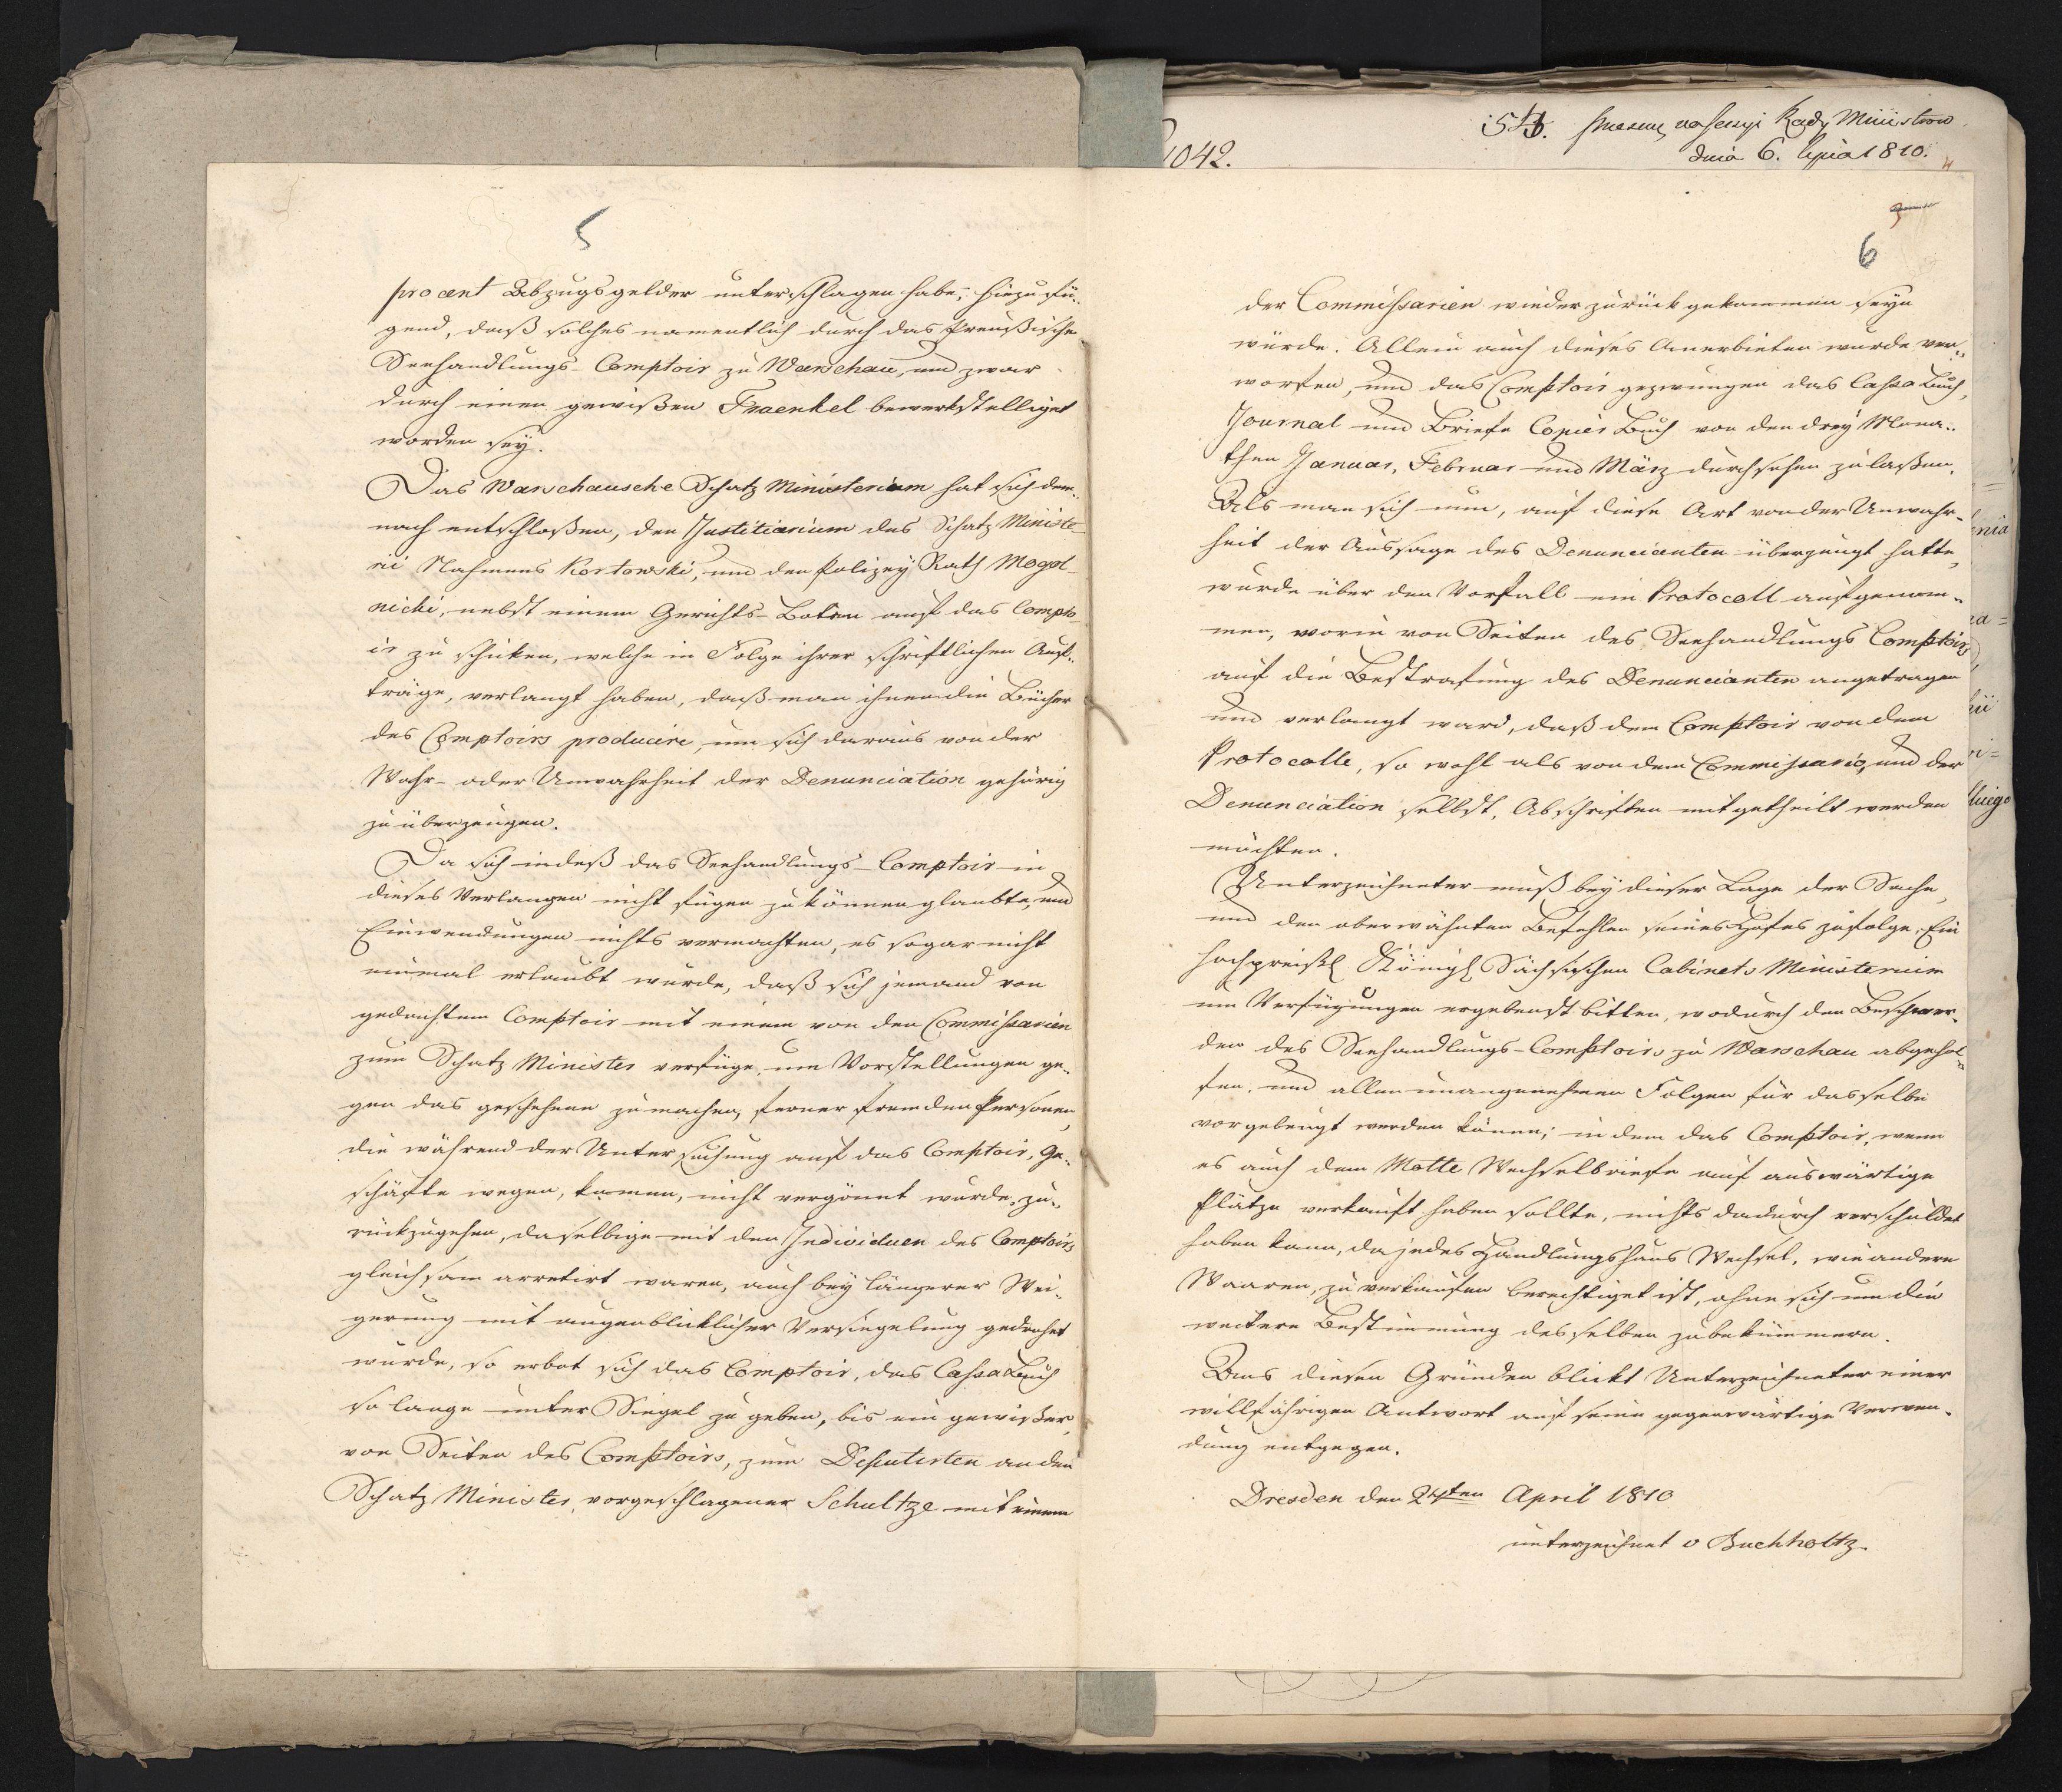 5
procent Abzugsgelder unterschlagen habe; hiezu fü-
gend, daß solches namentlich durch das Preußische
Seehandlungs-Comptoir zu Warschau, und zwar
durch einen gewißen Fraenkel bewerkstelliget
worden sey.
Das Warschausche Schatz Ministerium hat sich dem-
nach entschloßen, den Justitiarium des Schatz Ministe-
rii Nahmens Kortowski, und den Polizey Rath Mogol-
nicki, nebst einem Gerichts-Boten auf das Compto-
ir zu schicken, welche in Folge ihrer schriftlichen Auf-
träge, verlangt haben, daß man ihnen die Bücher
des Comptoirs producire, um sich daraus von der
Wahr- oder Unwahrheit der Denunciation gehörig
zu überzeugen.
Da sich indeß das Seehandlungs-Comptoir in
dieses Verlangen nicht fügen zu können glaubte, und
Einwendungen nichts vermochten, es sogar nicht
einmal erlaubt wurde, daß sich jemand von
gedachtem Comptoir mit einem von den Commissarien
zum Schatz Minister verfüge, um Vorstellungen ge-
gen das geschehene zu machen, ferner fremden Personen,
die während der Untersuchung auf das Comptoir, Ge-
schäfte wegen, kamen, nicht vergönnt wurde, zu-
rückzugehen, da selbige mit den Individuen des Comptoirs
gleichsam arretirt waren, auch bey längerer Wei-
gerung mit augenblicklicher Versiegelung gedrohet
wurde, so erbot sich das Comptoir, das Cassa Buch
so lange unter Siegel zu geben, bis ein gewißer,
von Seiten des Comptoirs, zum Deputirten an den
Schatz Minister, vorgeschlagener Schultze mit einem
1042.
wnesiony na sessyi Rady Ministrow
dnia 6. lipca 1810.
6
der Commissarien wieder zurück gekommen seyn
würde. Allein auch dieses Anerbieten wurde ver-
worfen, und das Comptoir gezwungen das Cassa Buch,
Journal und Briefe Copier Buch von den drey Mona-
then Januar, Februar und März durchsehen zu laßen.
Als man sich nun, auf diese Art von der Unwahr-
heit der Aussage des Denuncianten überzeugt hatte,
wurde über den Vorfall ein Protocoll aufgenom-
men, worin von Seiten des Seehandlungs Comptoirs
auf die Bestrafung des Denuncianten angetragen
und verlangt ward, daß dem Comptoir von dem
Protocolle, so wohl als von dem Commissario, und der
Denunciation selbst, Abschriften mitgetheilt werden
möchten.
Unterzeichneter muß bey dieser Lage der Sache,
und den oberwähnten Befehlen seines Hofes zufolge, Ein
hochpreißl Königl Sächsischen Cabinets Ministerium
um Verfügungen ergebenst bitten, wodurch den Beschwer-
den des Seehandlungs-Comptoirs zu Warschau abgehol-
fen, und allen unangenehmen Folgen für dasselbe
vorgebeugt werden könne; in dem das Comptoir, wenn
es auch dem Motte Wechselbriefe auf auswärtige
Plätze verkauft haben sollte, nichts dadurch verschuldet
haben kann, da jedes Handlungshaus Wechsel, wie andere
Waaren, zu verkaufen berechtiget ist, ohne sich um die
weitere Bestimmung desselben zu bekümmern.
Aus diesen Gründen blickt Unterzeichneter einer
willfährigen Antwort auf seine gegenwärtige Verwen-
dung entgegen.
Dresden den 24ten April 1810
unterzeichnet v Buchholtz.